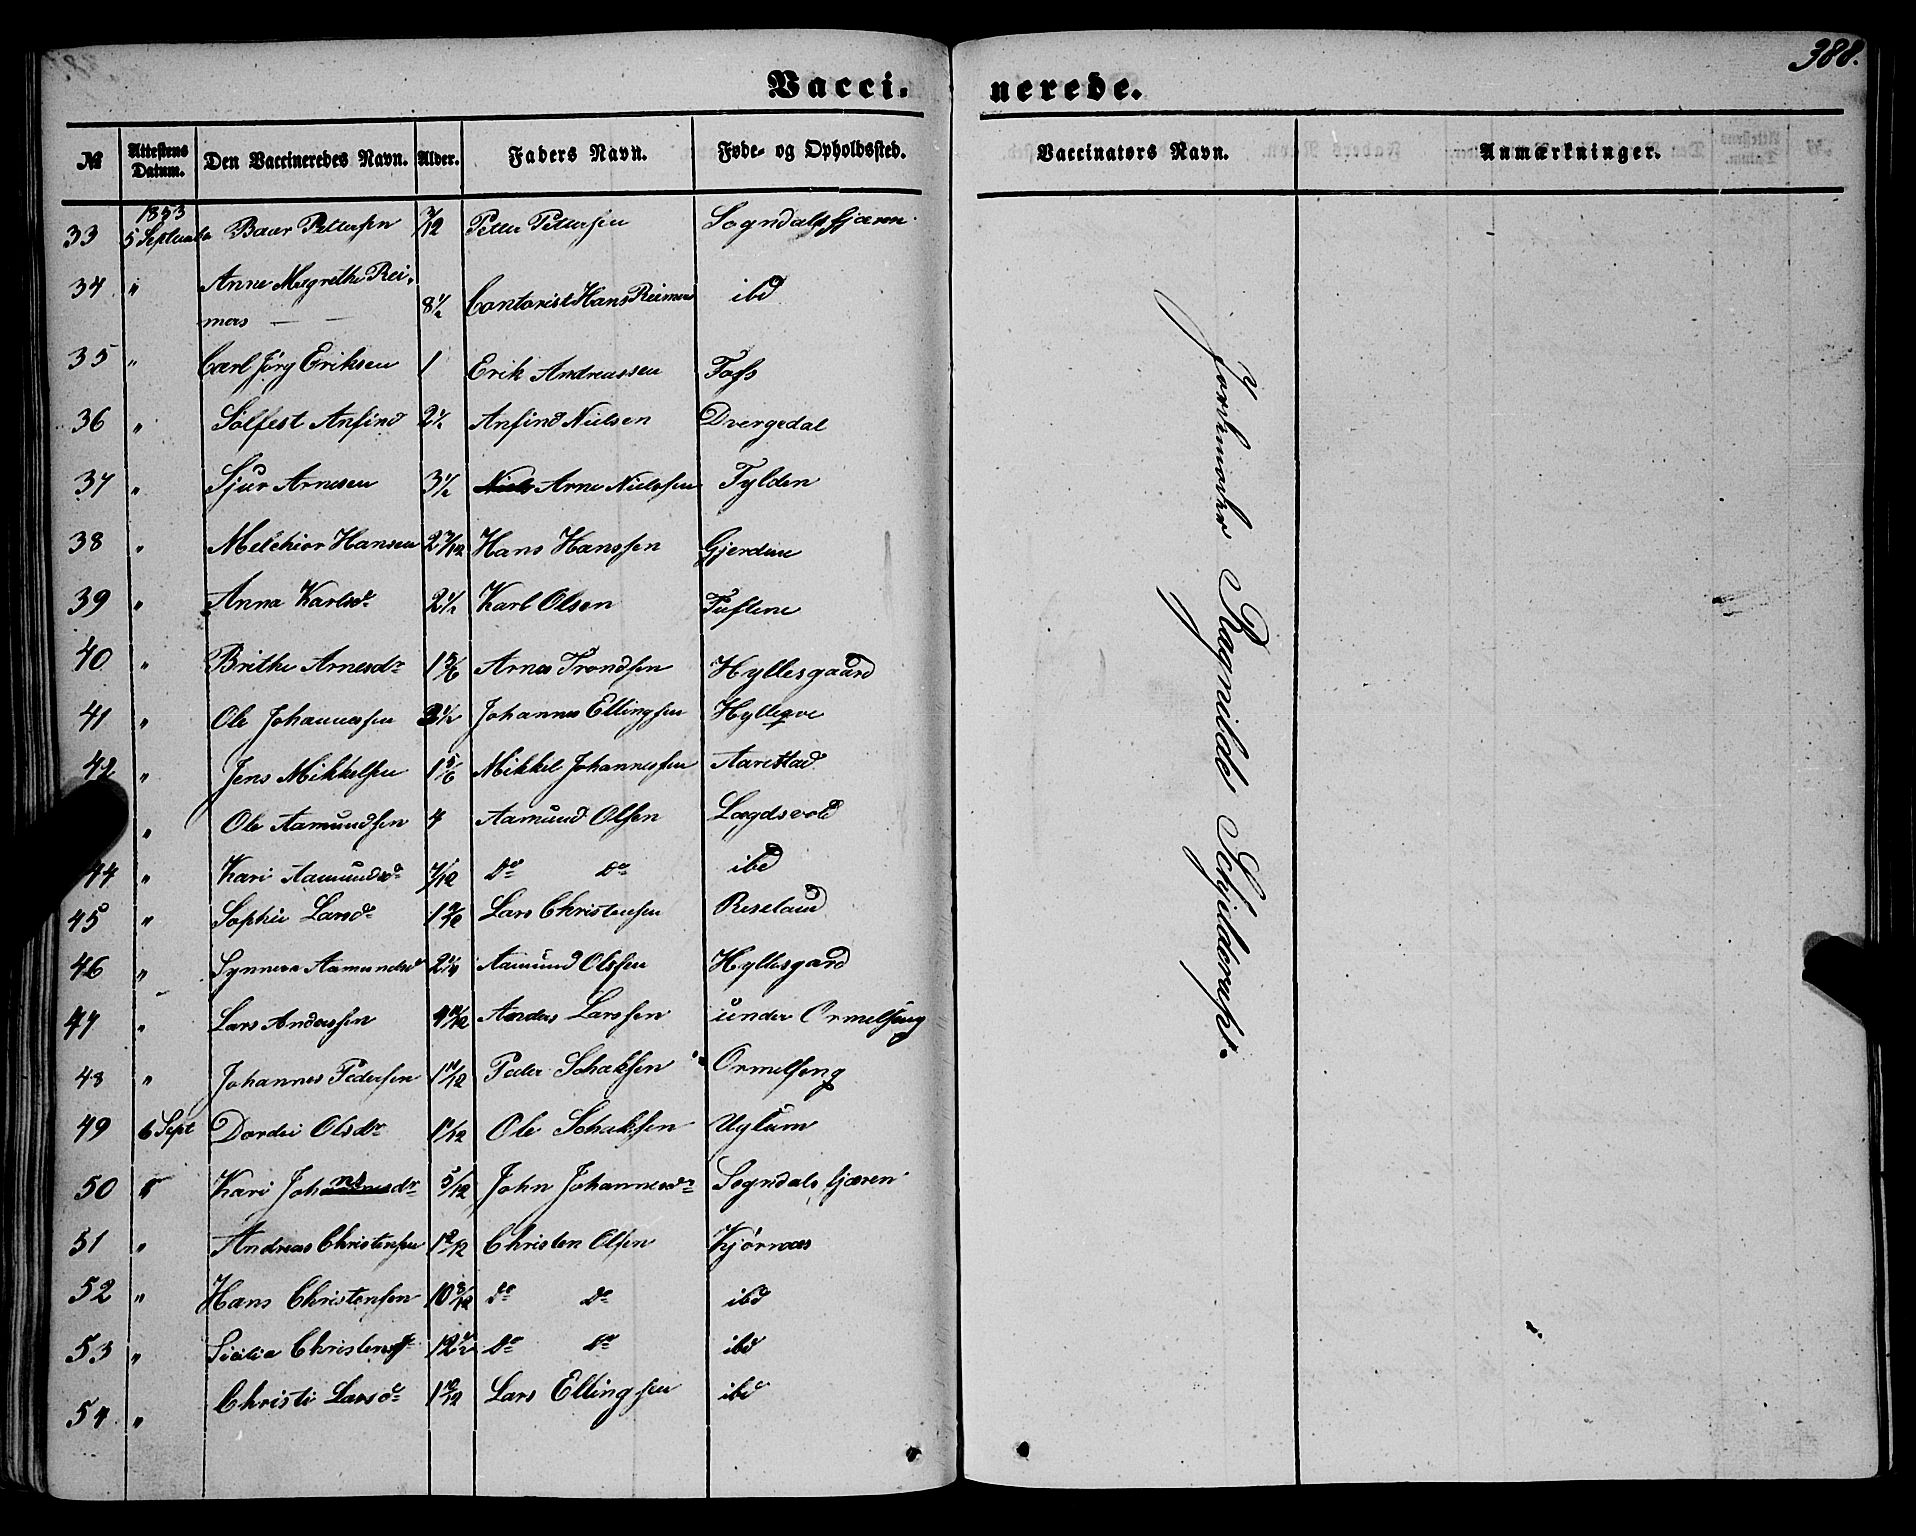 388.
Vacci- nerede.
№ Attestens Datum. Den Vaccineredes Navn. Alder. Faders Navn. Føde- og Opholdssted. Vaccinators Navn. Anmærkninger.
1853
33 5 September Baar Pettersen 7/12 Petter Pettersen Sogndalsfjæren
34 " Anne Margrethe Rei-
mers 8½ Contorist Hans Reimers ibd
35 " Carl Jørg Eriksen 1 Erik Andreassen Foss
36 " Sølfest Anfind 2½ Anfind Nielsen Dvergedal
37 " Sjur Arnesen 3½ Niels Arne Nielssen Fylden
38 " Melchior Hansen 2 7/12 Hans Hanssen Gjerdene
39 " Anna Karlsdr 2½ Karl Olsen Tuftene
40 " Brithe Arnesdr 1 5/6 Arne Trondsen Hyllesgaard
41 " Ole Johannessen 3½ Johannes Ellingsen
42 " Jens Mikkelsen 1 5/6 Mikkel Johannessen Aarestad
" Ole Aamundsen 4 Aamund Olsen Lægdsvold
44 " Kari Aamundsdr 7/12 do do ibd
45 " Sophie Larsdr Lars Christensen Reseland
46 " Synneva Aamundsd 2¼ Aamund Olssen Hyllesgard
47 " Lars Anderssen Anders Larssen under Ormelseng
48 " Johannes Pedersen 1 11/12 Peder Schaksen Ormelseng
49 6 Sept Dordei Olsdr Ole Schaksen Uglum
50 " Kari Johnsdr 5/12 John Johannesdr Sogndalsfjæren
51 " Andreas Christensen Christen Olsen Kjørnæs
52 " Hans Christensen do do ibd
53 " Sicilia Christensdr do do ibd
54 " Christi Larsdr 1 10/12 Lars Ellingsen ibd
Jordemoder Ragnilde Schjilderupt.